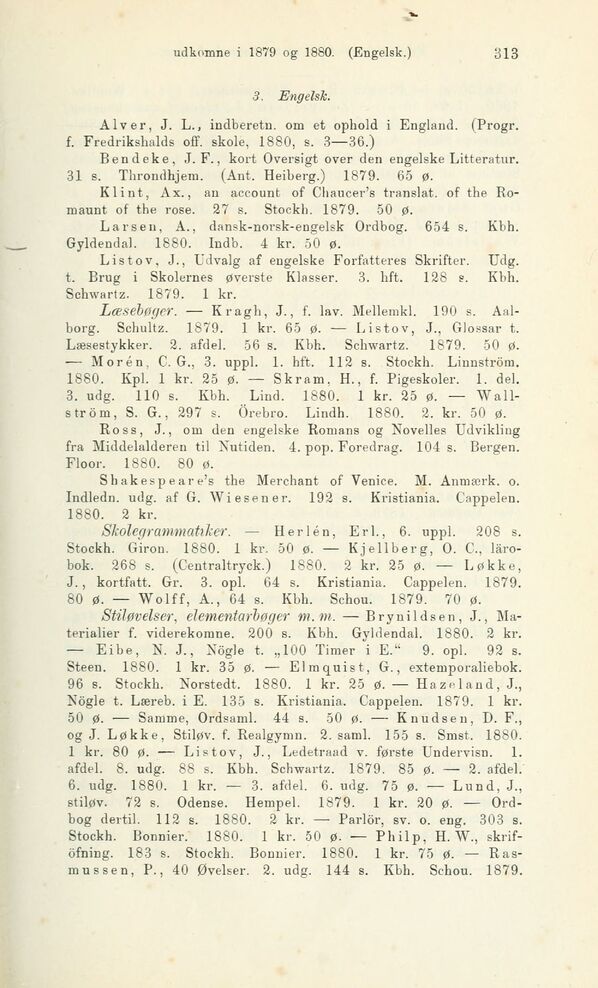 udkomne i 1879 og 1880. (Engelsk.) 313
3. Engelsk.
Alver, J. L., indberetn. om et ophold i England. (Progr.
f. Fredrikshalds off. skole, 1880, s. 3—36.)
Bendeke, J. F., kort Oversigt over den engelske Litteratur.
31 s. Throndhjem. (Ant. Heiberg.) 1879. 65 ø.
Klint, Ax., an account of Chaucer's translat. of the Ro-
maunt of the rose. 27 s. Stockh. 1879. 50 ø.
Larsen, A., dansk-norsk-engelsk Ordbog. 654 s. Kbh.
Gyldendal. 1880. Indb. 4 kr. 50 ø.
Listov, J., Udvalg af engelske Forfatteres Skrifter. Udg.
t. Brug i Skolernes øverste Klasser. 3. hft. 128 s. Kbh.
Schwartz. 1879. 1 kr.
Læsebøger. — Kragh, J., f. lav. Mellemkl. 190 s. Aal-
borg. Schultz. 1879. 1 kr. 65 ø. — Listov, J., Glossar t.
Læsestykker. 2. afdel. 56 s. Kbh. Schwartz. 1879. 50 ø.
— Morén, C. G., 3. uppl. 1. hft. 112 s. Stockh. Linnström.
1880. Kpl. 1 kr. 25 ø. — Skram, H., f. Pigeskoler. 1. del.
3. udg. 110 s. Kbh. Lind. 1880. 1 kr. 25 ø. — Wall-
ström, S. G., 297 s. Örebro. Lindh. 1880. 2. kr. 50 ø.
Ross, J., om den engelske Romans og Novelles Udvikling
fra Middelalderen til Nutiden. 4. pop. Foredrag. 104 s. Bergen.
Floor. 1880. 80 ø.
Shakespeare's the Merchant of Venice. M. Anmærk. o.
Indledn. udg. af G. Wiesener. 192 s. Kristiania. Cappelen.
1880. 2 kr.
Skolegrammatiker. — Herlén, Erl., 6. uppl. 208 s.
Stockh. Giron. 1880. 1 kr. 50 ø. — Kjellberg, O. C., läro-
bok. 268 s. (Centraltryck.) 1880. 2 kr. 25 ø. — Løkke,
J., kortfatt. Gr. 3. opl. 64 s. Kristiania. Cappelen. 1879.
80 ø. — Wolff, A., 64 s. Kbh. Schou. 1879. 70 ø.
Stiløvelser, elementarbøger m. m. — Brynildsen, J., Ma-
terialier f. viderekomne. 200 s. Kbh. Gyldendal. 1880. 2 kr.
— Eibe, N. J., Nögle t. „100 Timer i E.“ 9. opl. 92 s.
Steen. 1880. 1 kr. 35 ø. — Elmquist, G., extemporaliebok.
96 s. Stockh. Norstedt. 1880. 1 kr. 25 ø. — Hazeland, J.,
Nögle t. Læreb. i E. 135 s. Kristiania. Cappelen. 1879. 1 kr.
50 ø. — Samme, Ordsaml. 44 s. 50 ø. — Knudsen, D. F.,
og J. Løkke, Stiløv. f. Realgymn. 2. saml. 155 s. Smst. 1880.
1 kr. 80 ø. — Listov, J., Ledetraad v. første Undervisn. 1.
afdel. 8. udg. 88 s. Kbh. Schwartz. 1879. 85 ø. — 2. afdel.
6. udg. 1880. 1 kr. — 3. afdel. 6. udg. 75 ø. — Lund, J.,
stiløv. 72 s. Odense. Hempel. 1879. 1 kr. 20 ø. — Ord-
bog dertil. 112 s. 1880. 2 kr. — Parlör, sv. o. eng. 303 s.
Stockh. Bonnier. 1880. 1 kr. 50 ø. — Philp, H. W., skrif-
öfning. 183 s. Stockh. Bonnier. 1880. 1 kr. 75 ø. — Ras-
mussen, P., 40 Øvelser. 2. udg. 144 s. Kbh. Schou. 1879.